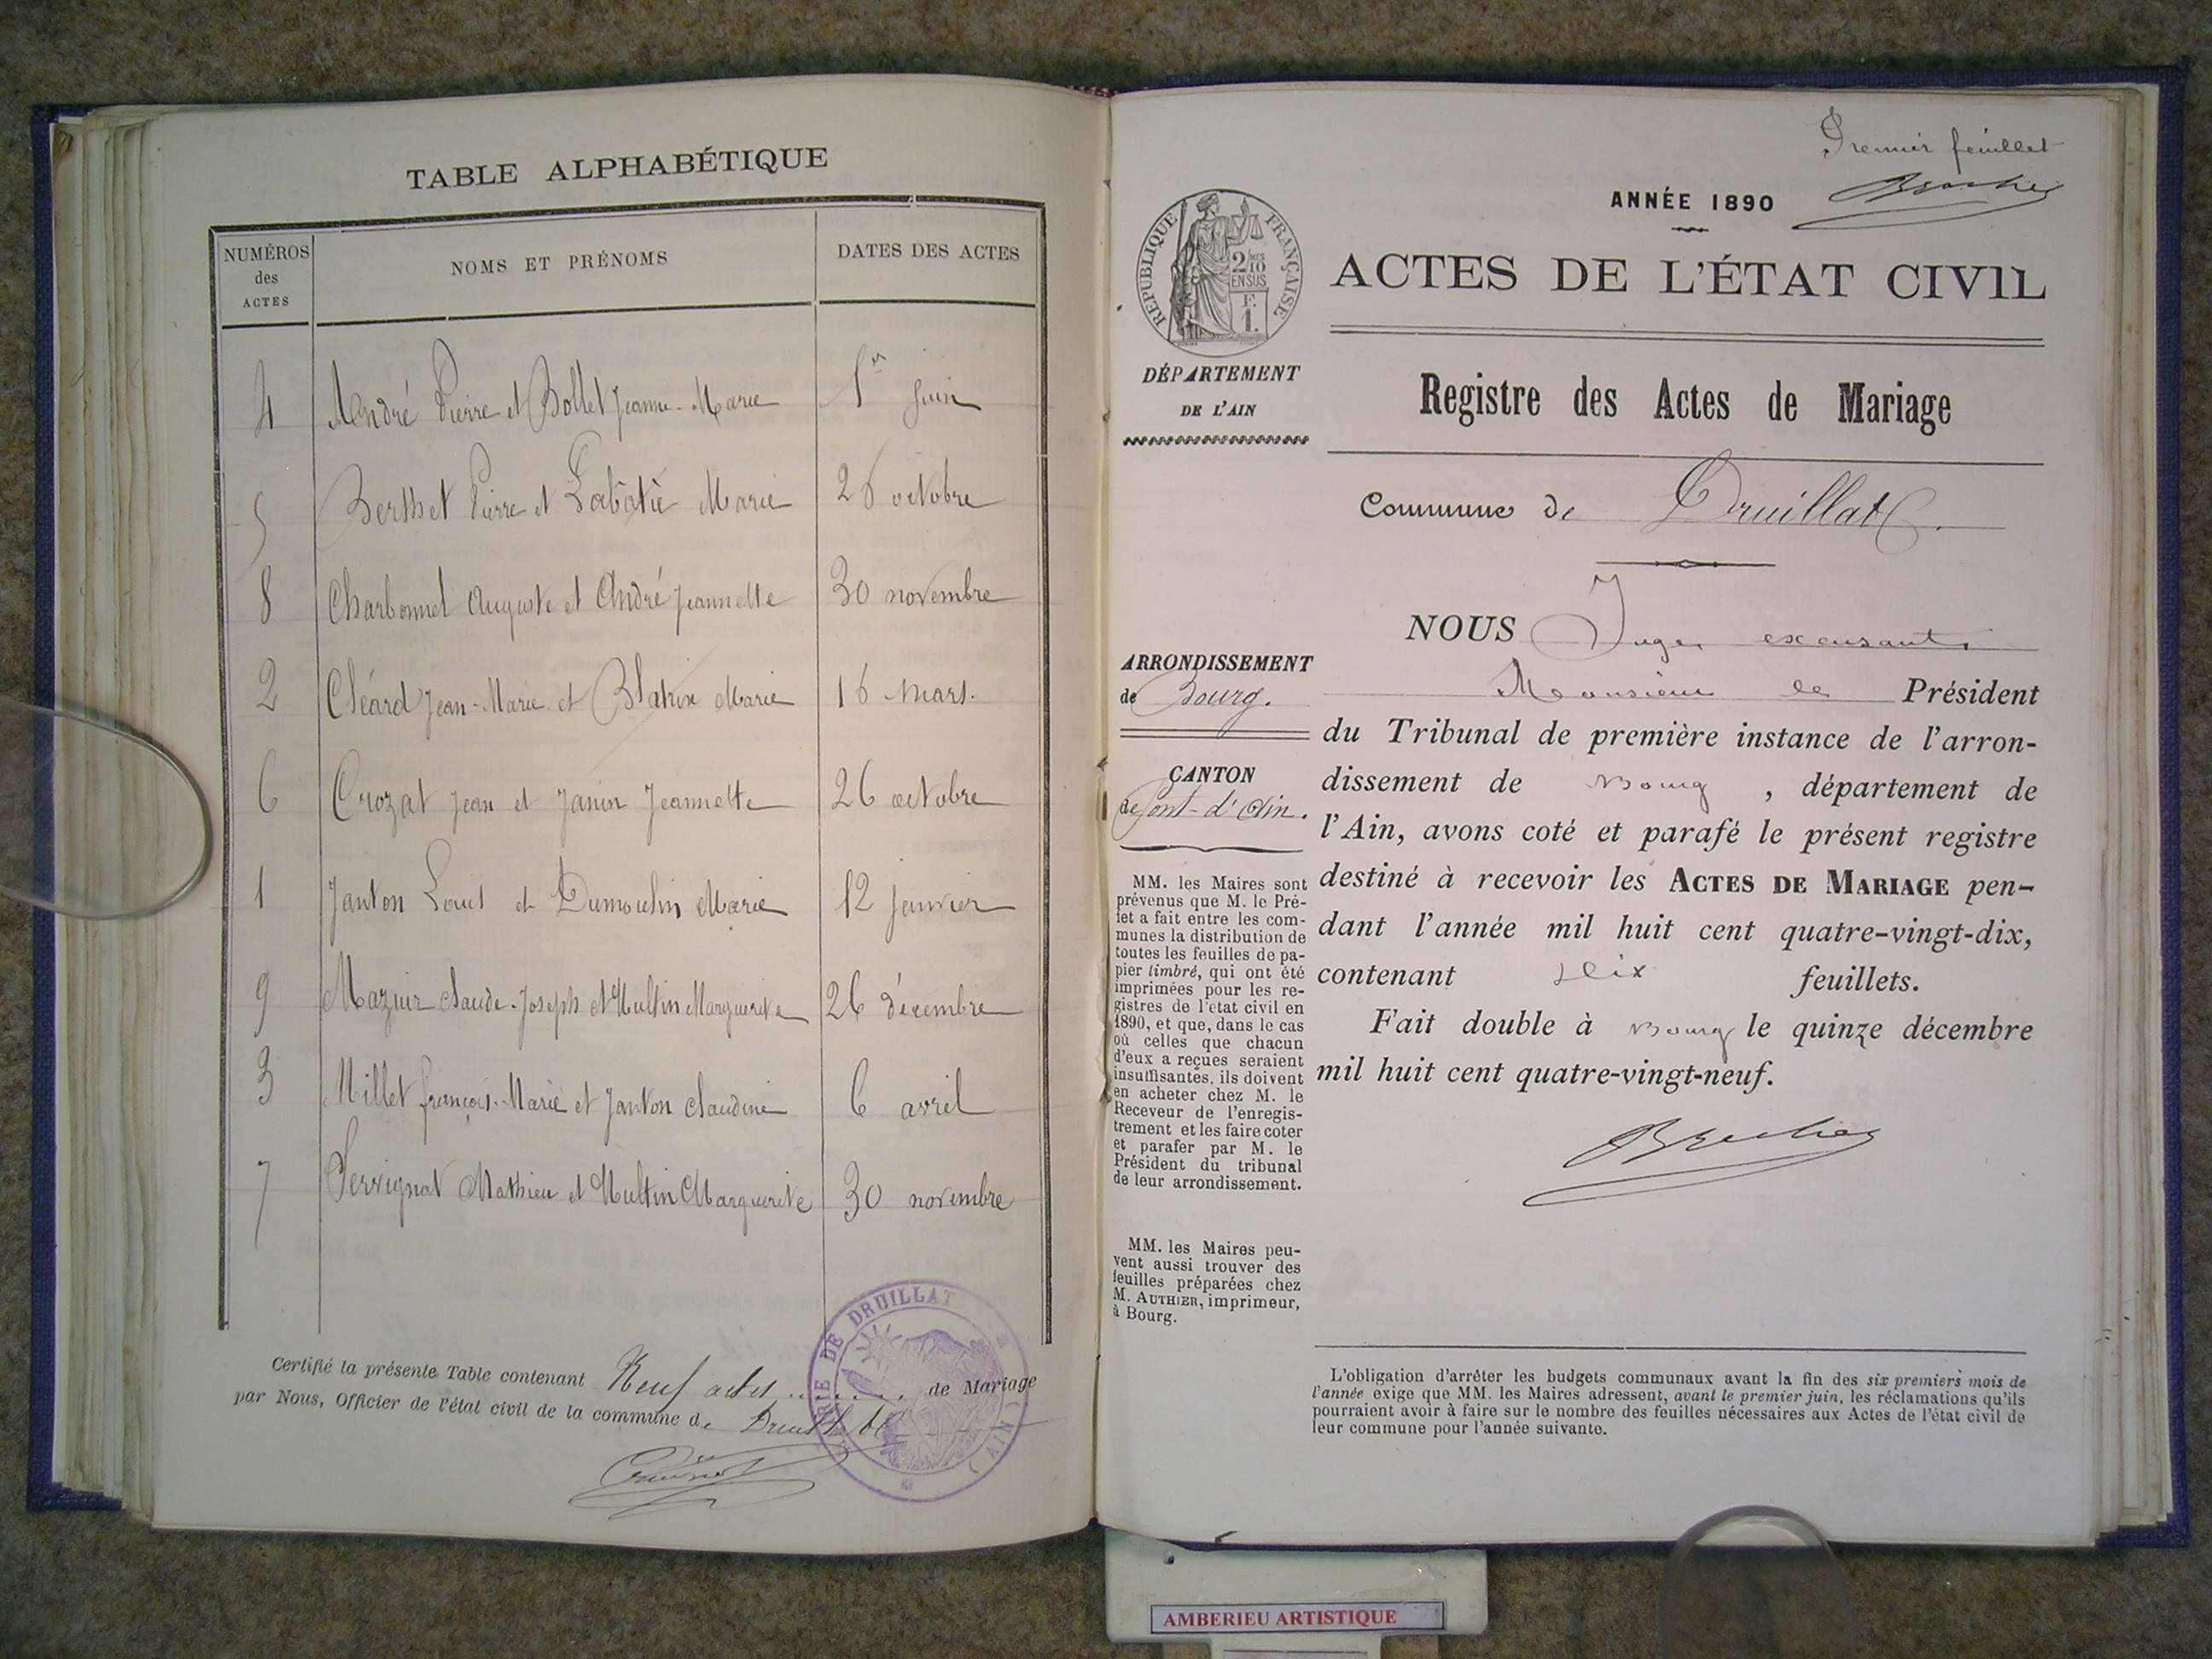 TABLE ALPHABÉTIQUE
NUMÉROS des ACTES
NOMS ET PRÉNOMS
DATES DES ACTES
4 André Pierre et Bollet Jeanne-Marie 1er Juin
5 Berthet Pierre et Labatie Marie 26 octobre
8 Charbonnet Auguste et André Jeannette 30 novembre
2 Cléard Jean-Marie et Blatrix Marie 16 Mars.
6 Crozat Jean et Janin Jeannette 26 octobre
1 Janton Louis et Dumoulin Marie 12 janvier
9 Mazuir Claude-Joseph et Multin Marguerite 26 décembre
3 Millet François-Marie et Janton Claudine 6 avril
7 Servignat Mathieu et Multin Marguerite 30 novembre
Certifié la présente Table contenant Neuf actes de Mariage
par Nous, Officier de l'état civil de la commune de Druillat
MAIRIE DE DRUILLAT (AIN)
Premier feuillet
ANNÉE 1890
RÉPUBLIQUE FRANÇAISE
2/10 EN SUS
F. 1.
ACTES DE L'ÉTAT CIVIL
DÉPARTEMENT
DE L'AIN
Registre des Actes de Mariage
Commune de Druillat.
NOUS Juge, excusant
Monsieur le Président
du Tribunal de première instance de l'arron-
dissement de Bourg, département de
l'Ain, avons coté et parafé le présent registre
destiné à recevoir les ACTES DE MARIAGE pen-
dant l'année mil huit cent quatre-vingt-dix,
contenant dix feuillets.
Fait double à Bourg le quinze décembre
mil huit cent quatre-vingt-neuf.
ARRONDISSEMENT
de Bourg.
CANTON
de Pont-d'Ain.
MM. les Maires sont
prévenus que M. le Pré-
fet a fait entre les com-
munes la distribution de
toutes les feuilles de pa-
pier timbré, qui ont été
imprimées pour les re-
gistres de l'état civil en
1890, et que, dans le cas
où celles que chacun
d'eux a reçues seraient
insuffisantes, ils doivent
en acheter chez M. le
Receveur de l'enregis-
trement et les faire coter
et parafer par M. le
Président du tribunal
de leur arrondissement.
MM. les Maires peu-
vent aussi trouver des
feuilles préparées chez
M. AUTHIER, imprimeur,
à Bourg.
L'obligation d'arrêter les budgets communaux avant la fin des six premiers mois de
l'année exige que MM. les Maires adressent, avant le premier juin, les réclamations qu'ils
pourraient avoir à faire sur le nombre des feuilles nécessaires aux Actes de l'état civil de
leur commune pour l'année suivante.
AMBERIEU ARTISTIQUE